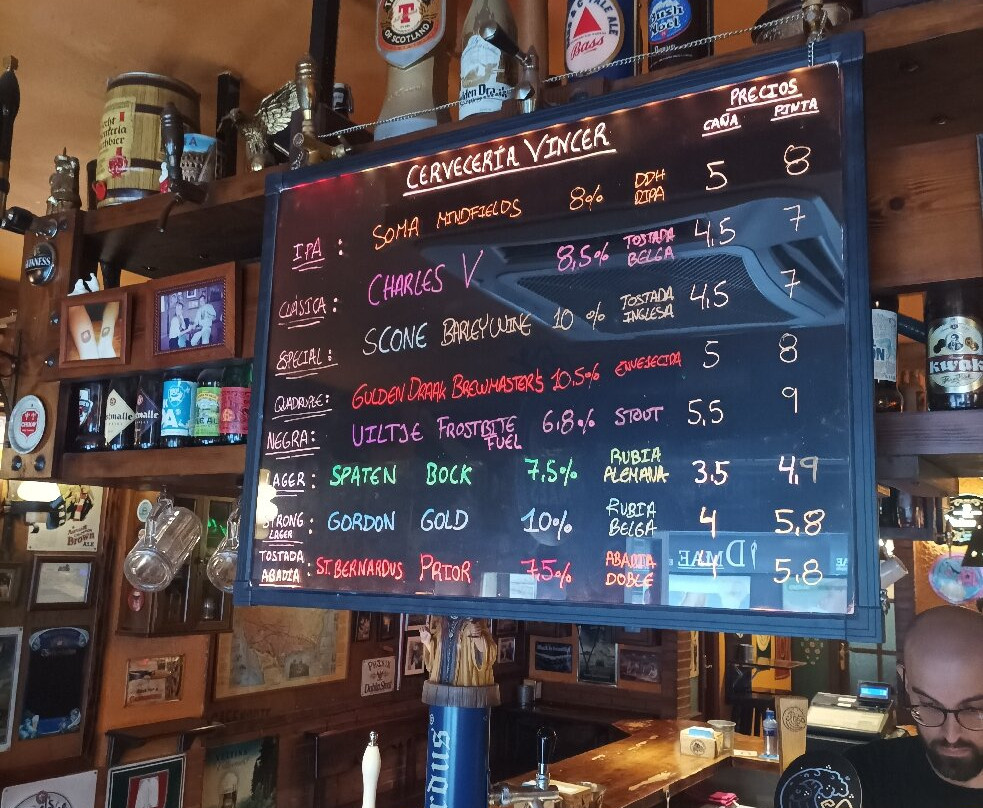 OF SCOTLAND
PALE ALE
Bass
Noel
PRECIOS
CAÑA PINTA
CERVECERÍA VINCER
IPA : SOMA MINDFIELDS 8% DDH DIPA 5 8
CLÁSICA : CHARLES V 8,5% TOSTADA BELGA 4,5 7
ESPECIAL : SCONE BARLEYWINE 10 % TOSTADA INGLESA 4,5 7
QUADRUPLE: GULDEN DRAAK BREWMASTER'S 10.5% ENVEJECIDA 5 8
NEGRA: UILTJE FROSTBITE FUEL 6.8% STOUT 5,5 9
LAGER: SPATEN BOCK 7,5% RUBIA ALEMANA 3.5 4,9
STRONG LAGER : GORDON GOLD 10% RUBIA BELGA 4 5,8
TOSTADA ABADÍA : ST. BERNARDUS PRIOR 7,5% ABADÍA DOBLE 4 5.8
GUINNESS
Kwak
Brown
ALE